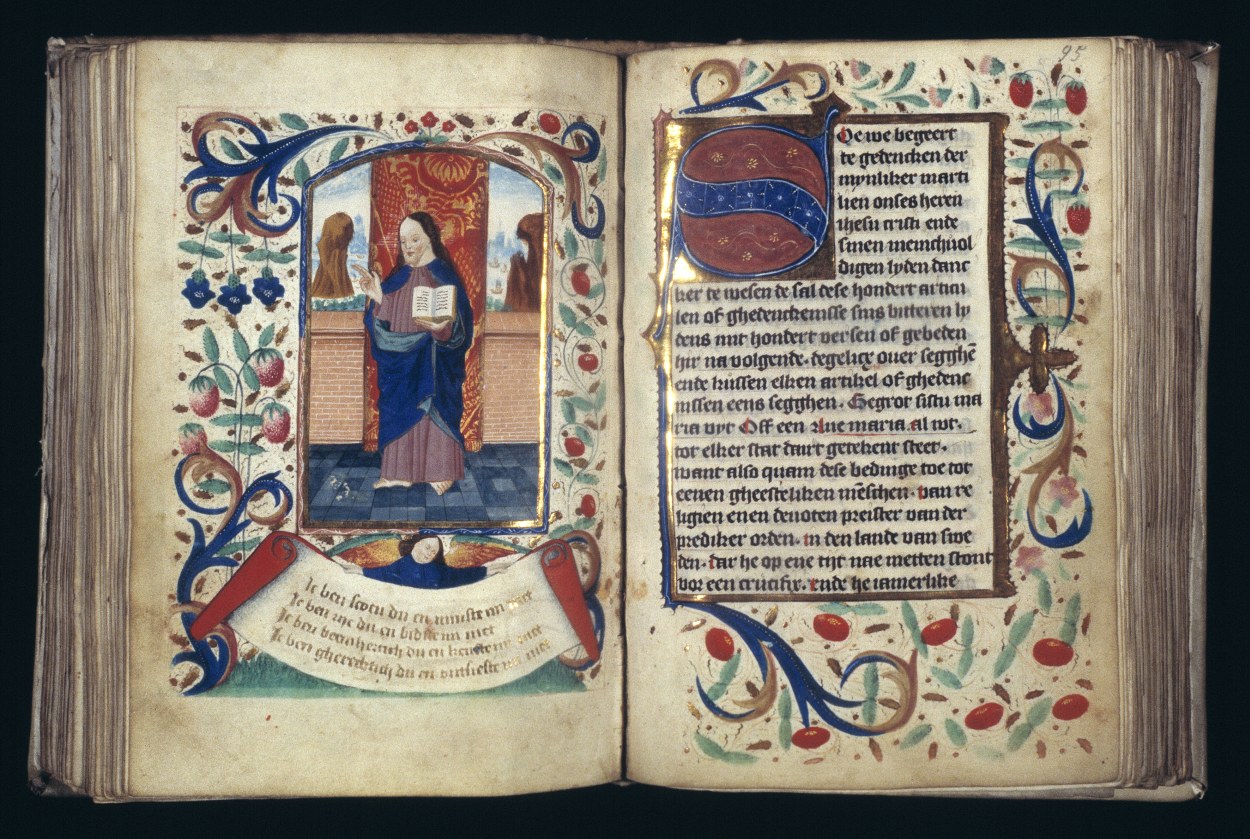 Ic ben scoen du en minste mi niet
Ic ben rijc du en bidste mi niet
Ic ben
Ic ben gherechtich du en ontsieste mi niet
95
Soe we begeert
te gedencken der
mynliker marti
lien onses heren
ihesu cristi ende
sinen menichuol
digen lyden danc
ker te wesen de sal dese hondert artiri
len of ghedenckenisse sijns bitteren ly
dens mit hondert versen of gebeden
hir na volgende. degelicx ouer segghē
ende tussen elken artikel of ghedenc
nissen eens segghen. Gegrot sistu ma
ria vyt Off een Aue maria al wt.
tot elker stat dairt getekent steet.
want also quam dese bedinge toe tot
eenen gheesteliken mēschen. van re
ligien enen deuoten preister van der
prediker orden. in den lande van swe
den. dar he op ene tijt nae metten stont
vor een crucifix. ende he iamerlike